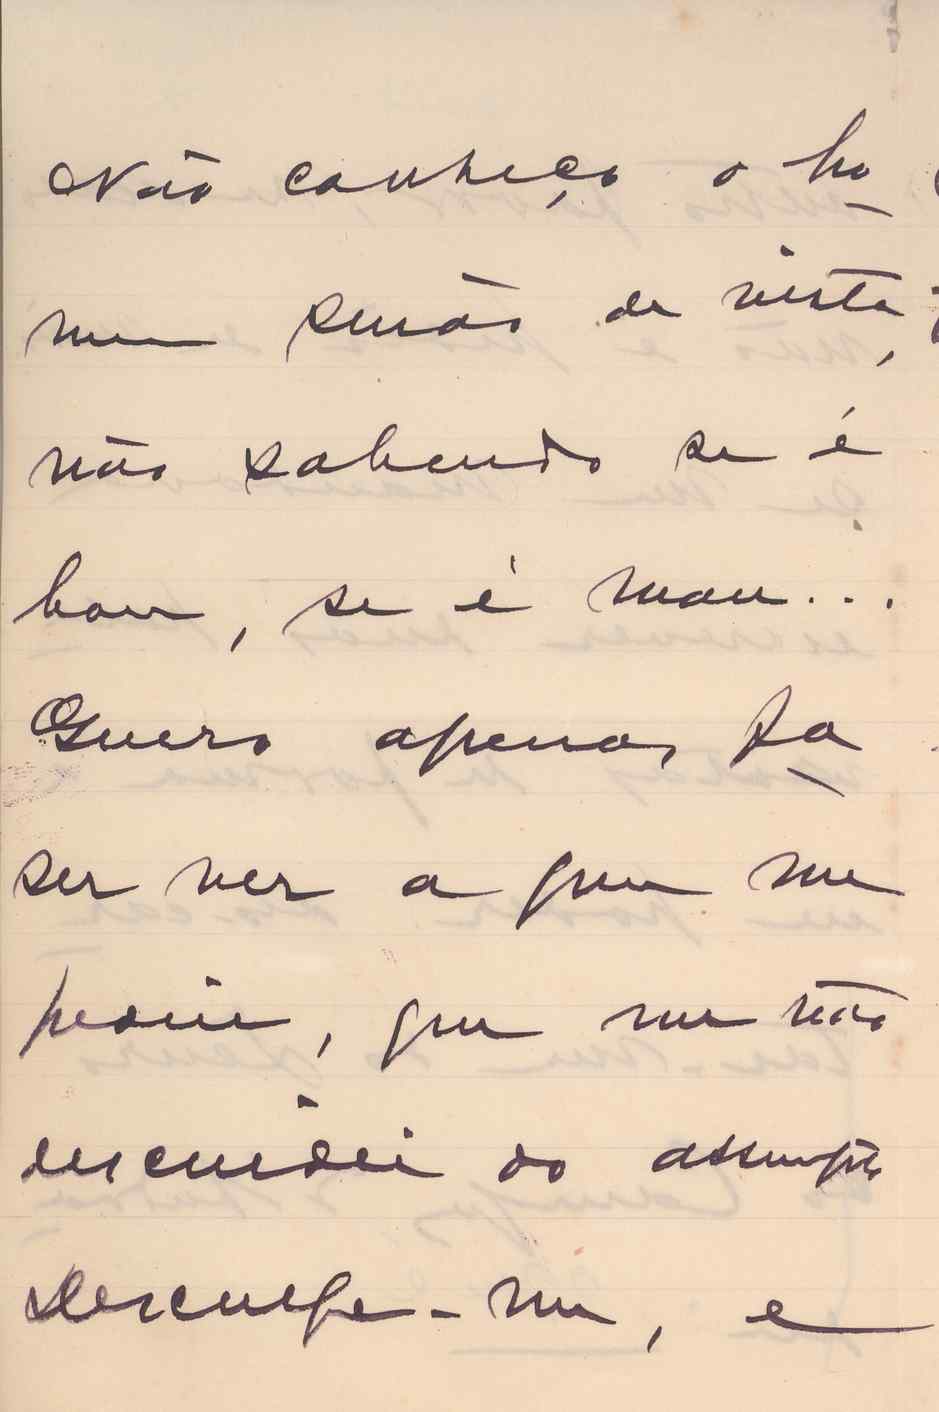 Não conheço o ho
mem senão de vista,
não sabendo se é
bom, se é mau...
Quero apenas fa
ser ver a quem me
pediu, que me não
descuidei do assumpto
Desculpe-me, e